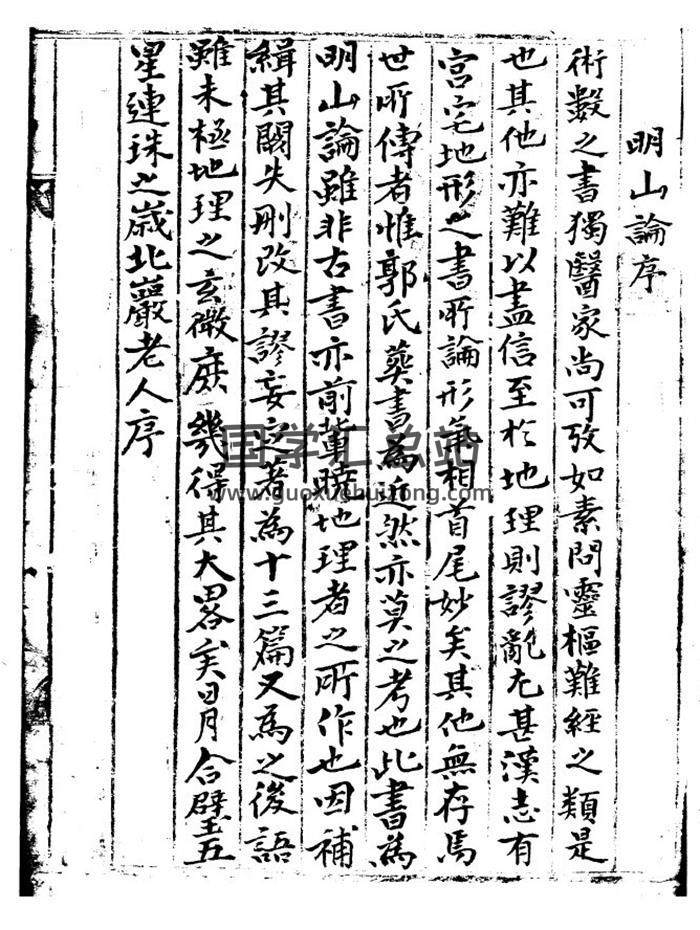 明山論序
術數之書獨醫家尚可攷如素問靈樞難經之類是
也其他亦難以盡信至於地理則謬亂尤甚漢志有
宮宅地形之書所論形氣相首尾妙矣其他無存焉
世所傳者惟郭氏葬書為近然亦莫之考也此書為
明山論雖非古書亦前輩曉地理者之所作也因補
緝其闕失刪改其謬妄定著為十三篇又為之後語
雖未極地理之玄微庶幾得其大畧矣日月合璧五
星連珠之歲北巖老人序
国学汇总站
www.guoxuehuizong.com